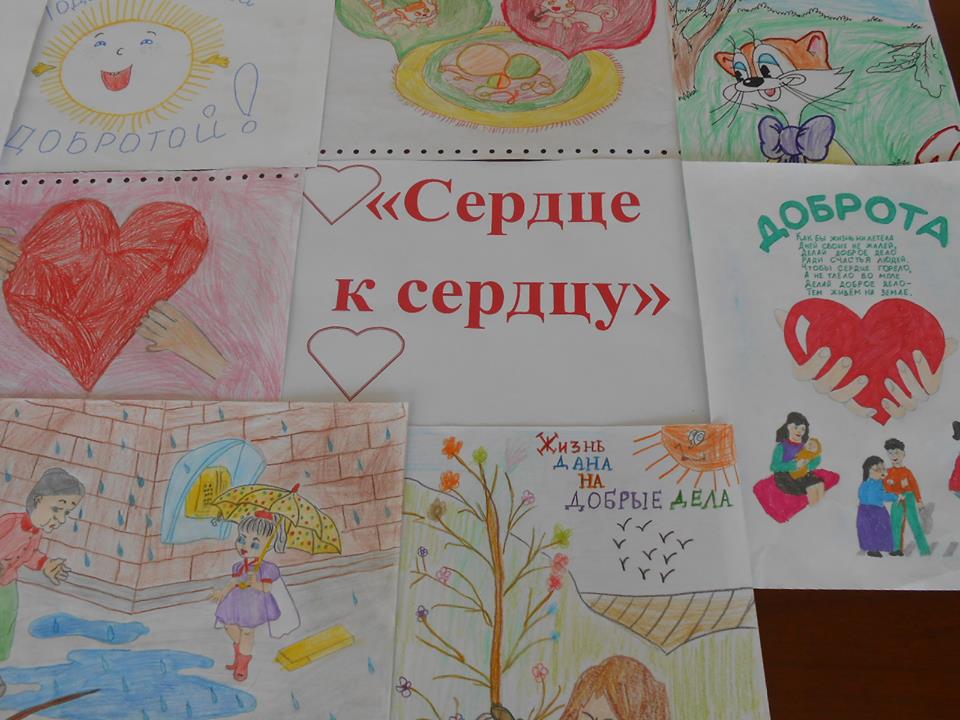 ДОБРОТОЙ!
«Сердце
к сердцу»
ДОБРОТА
КАК БЫ ЖИЗНЬ НИ ЛЕТЕЛА
ДНЕЙ СВОИХ НЕ ЖАЛЕЙ,
ДЕЛАЙ ДОБРОЕ ДЕЛО
РАДИ СЧАСТЬЯ ЛЮДЕЙ.
ЧТОБЫ СЕРДЦЕ ГОРЕЛО,
А НЕ ТЛЕЛО ВО МГЛЕ
ДЕЛАЙ ДОБРОЕ ДЕЛО-
ТЕМ ЖИВЁМ НА ЗЕМЛЕ.
Жизнь
ДАНА
НА
ДОБРЫЕ ДЕЛА